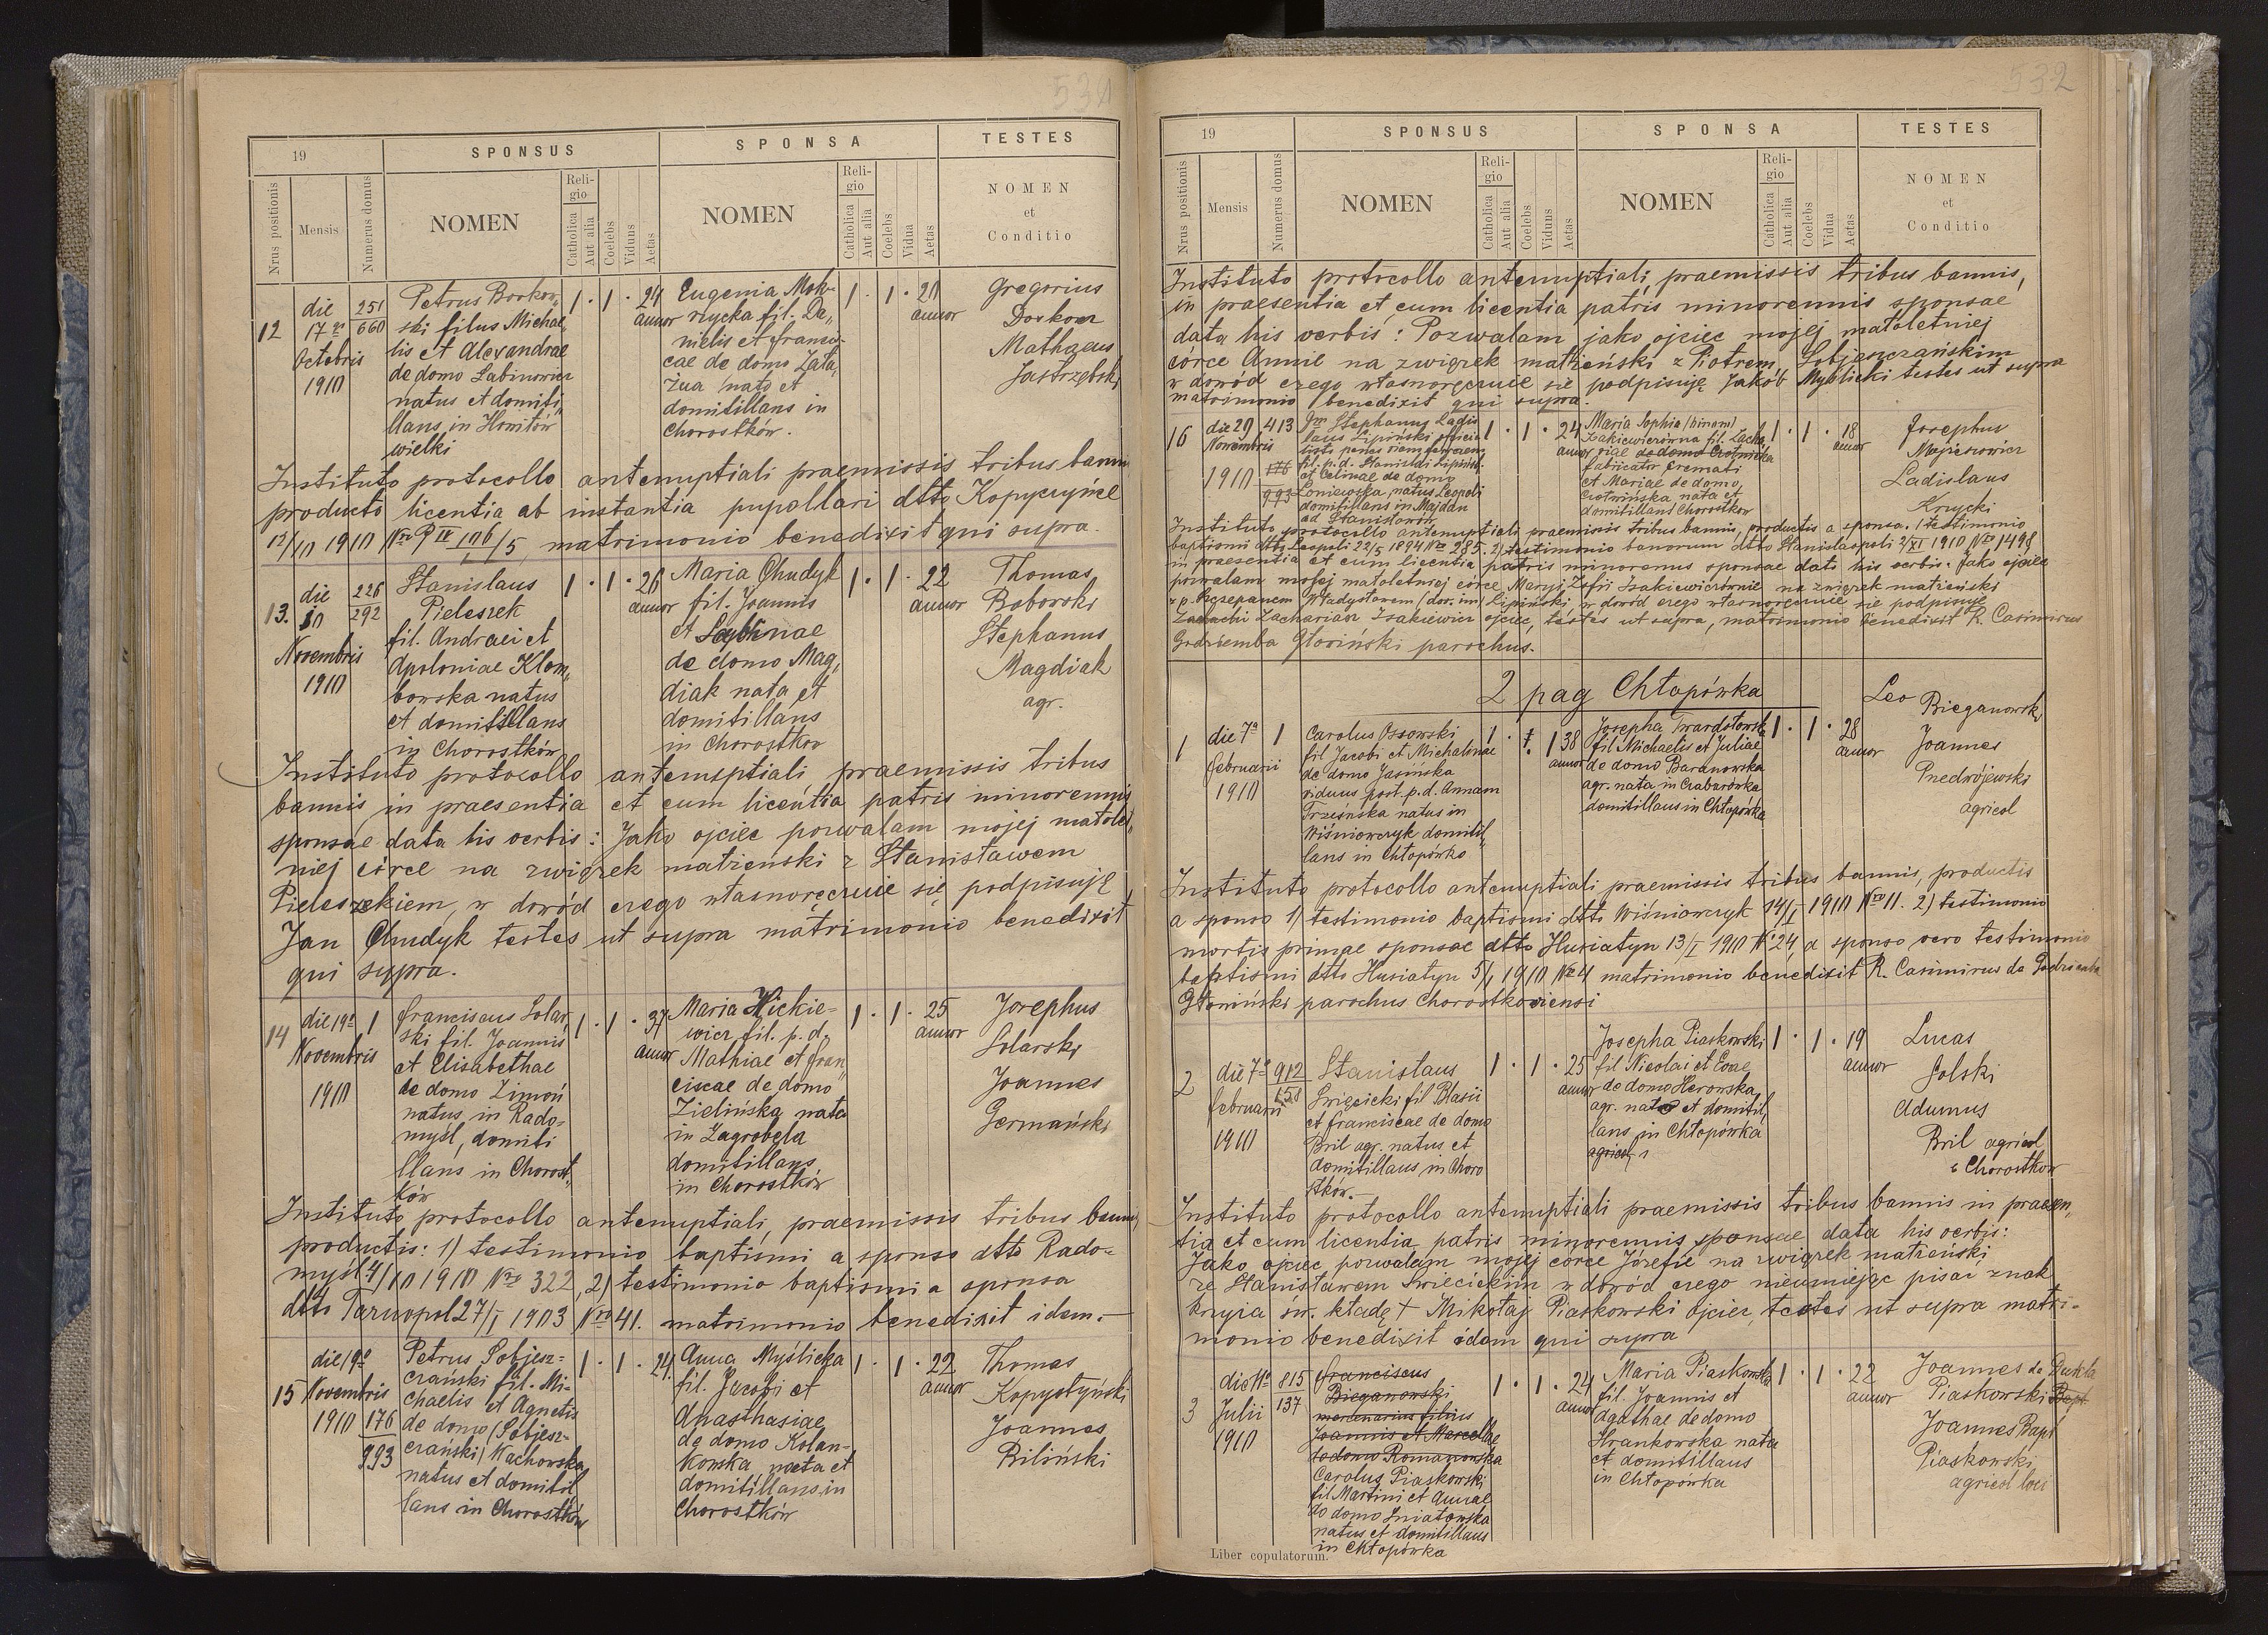 531
19
SPONSUS
SPONSA
TESTES
Nrus positionis
Mensis
Numerus domus
NOMEN
Religio
Catholica
Aut alia
Coelebs
Viduus
Aetas
NOMEN
Religio
Catholica
Aut alia
Coelebs
Vidua
Aetas
NOMEN
et
Conditio
12
die
17
Octobris
1910
251
660
Petrus Borkow„
ski filus Michae„
lis et Alexandrae
de domo Sabinowicz
natus et domiti„
llans in Howitów
wielki
1 · 1 · 24
annor
Eugenia Mok-
rzycka fil. Da„
nielis et Francis-
cae de domo
nata et
domitillans in
Chorostków.
1 · 1 · 21
annor
Gregorius
Mathaeus
Jastrzębski
Instituto protocollo antenuptiali praemissis tribus bannis
producto licentia ab instantia pupollari dtto Kopyczyńce
12/10 1910 Nro P IV 106/5, matrimonio benedixit qui supra.
13.
die
10
Novembris
1910
226
292
Stanislaus
Pieleszek
fil. Andraei et
Apoloniae Klem„
bowska natus
et domitillans
in Chorostków
1 · 1 · 26
annor
Maria Chudyk
fil. Joannis
et Sabinae
de domo Mag„
diak nata et
domitillans
in Chorostkov
1 · 1 · 22
annor
Thomas
Bobowski
Stephanus
Magdiak
agr.
Instituto protocollo antenuptiali praemissis tribus
bannis in praesentia et cum licentia patris minorennis
sponsae data his verbis: Jako ojciec pozwalam mojej małolet„
niej córce na związek małżenski z Stanisławem
Pieleszekiem, w dowód czego własnoręcznie się podpisuję
Jan Chudyk testes ut supra matrimonio benedixit
qui supra.
14
die 19
Novembris
1910
1
Franciscus Solar„
ski fil. Joannis
et Elisabethae
de domo Zimoń
natus in Rado-
myśl, domiti
llans in Chorost„
ków
1 · 1 · 37
annor
Maria Hickie-
wicz fil. p. d.
Mathiae et Fran„
ciscae de domo
Zielińska nata
in Zagrobela
domitillans
in Chorostków
1 · 1 · 25
annor
Josephus
Solarski
Joannes
Germański
Instituto protocollo antenuptiali, praemissis tribus bannis
productis: 1) testimonio baptismi a sponso dtto Rado-
myśl 4/10 1910 Nro 322, 2) testimonio baptismi a sponsa
dtto Tarnopol 27/I 1903 Nro 41. matrimonio benedixit idem.
15
die 19
Novembris
1910
176
993
Petrus Sobjesz-
czański fil. Mi-
chaelis et Agnetis
de domo (Sobjesz-
czański) Wachowska
natus et domitil
lans in Chorostków
1 · 1 · 24
Anna Myślicka
fil. Jacobi et
Anasthasiae
de domo Kolan-
kowska nata et
domitillans in
Chorostków
1 · 1 · 22
annor
Thomas
Kopystyński
Joannes
Biliński
532
19
SPONSUS
SPONSA
TESTES
Nrus positionis
Mensis
Numerus domus
NOMEN
Religio
Catholica
Aut alia
Coelebs
Viduus
Aetas
NOMEN
Religio
Catholica
Aut alia
Coelebs
Vidua
Aetas
NOMEN
et
Conditio
Instituto protocollo antenuptiali, praemissis tribus bannis,
in praesentia et cum licentia patris minorennis sponsae
data his verbis: Pozwalam jako ojciec mojej małoletniej
córce Annie na związek małżeński z Piotrem Sobjeszczańskim
w dowód czego własnoręcznie się podpisuję Jakób Myślicki testes ut supra
matrimonio benedixit qui supra.
16
die 29
Novembris
1910
413
176
993
Stephanus Ladis
laus Lipiński officia
fil. p. d. Stanislai Lipiński
et Celinae de domo
Łoniewska, natus Leopoli
domitillans in Majdan
ad Stanisławów
1 · 1 · 24
annor
Maria Sophia (binom)
Isakiewiczówna fil. Zacha„
riae de domo Crotwińska
fabricator cremati
et Mariae de domo
Crotwińska nata et
domitillans Chorostkow
1 · 1 · 18
annor
Josephus
Mojzesowicz
Ladislaus
Krycki
Instituto protocollo antenuptiali praemissis tribus bannis, productis a sponso. 1 testimonio
baptismi dtto Leopoli 22/5 1894 Nro 285. 2) testimonio bannorum dtto Stanislaopoli 2/XI 1910 Nro 1498
in praesentia et cum licentia patris minorennis sponsae dato his verbis: Jako ojciec
pozwalam mojej małoletniej córce Maryi Zofii Isakiewiczównie na związek małżeński
z p. Szczepanem Władysławem (dw. im) Lipiński, w dowód czego własnoręcznie się podpisuje
Zachariasz Isakiewicz ojciec, testes ut supra, matrimonio benedixit R. Casimirus
Godziemba Głowiński parochus.
2 pag Chłopówka
1
die 7
Februarii
1910
1
Carolus Ossowski
fil Jacobi et Michalinae
de domo Jasińska
viduus post. p. d. Annam
Trzcińska natus in
Wiśniowczyk domitil„
lans in Chłopówka
1 · 1 38
annor
Josepha
fil Michaelis et Juliae
de domo Baranowska
agr. nata in Czabarówka
domitillans in Chłopówka
1 · 1 · 28
annor
Leo
Bieganowski
Joannes
agricol
Instituto protocollo antenuptiali praemissis tribus bannis, productis
a sponso 1) testimonio baptismi dtto Wiśniowczyk 14/I 1910 Nro 11. 2) testimonio
mortis primae sponsae dtto Husiatyn 13/I 1910 N. 24, a sponso vero testimonio
baptismi dtto Husiatyn 5/I 1910 Nro 4 matrimonio benedixit R. Casimirus de Godziemba
Głowiński parochus Chorostkoviensi
2
die 7
Februarii
1910
912
158
Stanislaus
Święcicki fil Blasii
et Franciscae de domo
Bril agr. natus et
domitillans in Choro
stków.
1 · 1 · 25
annor
Josepha Piaskowski
fil Nicolai et Evae
de domo Herowska
agr. nata et domitil„
lans in Chłopówka
agricol
1 · 1 · 19
annor
Lucas
Solski
Adumus
Bril agricol
Chorostkow
Instituto protocollo antenuptiali praemissis tribus bannis in praesen„
tia et cum licentia patris minorennis sponsae data his verbis:
Jako ojciec pozwalam mojej córce Józefie na związek małżeński
ze Stanisławem Swiecickim w dowód czego nieumiejąc pisac znak
krzyża św. kładę + Mikołaj Piaskowski ojciec, testes ut supra matri-
monio benedixit idem qui supra
3
die 11
Julii
1910
815
137
Franciscus
Bieganowski
mercenarius filius
Joannis et Marcellae
de domo Romanowska
Carolus Piaskowski
fil Martini et Annae
de domo Sniatowska
natus et domitillans
in Chłopówka
1 · 1 · 24
annor
Maria Piaskowska
fil. Joannis et
Agathae de domo
Hrankowska nata
et domitillans
in Chłopówka
1 · 1 · 22
annor
Joannes de Dukla
Piaskowski Bapt
Joannes Bapt
Piaskowski
agricol loci
Liber copulatorum.